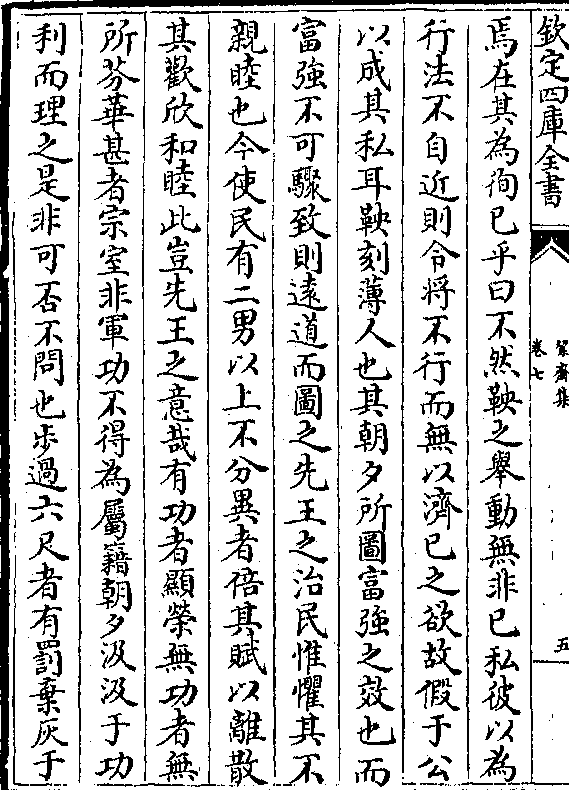 欽定四庫全書
絜齋集
卷七
五
焉在其為徇已乎曰不然鞅之舉動無非已私彼以為
行法不自近則令將不行而無以濟已之欲故假于公
以成其私耳鞅刻薄人也其朝夕所圖富強之效也而
富強不可驟致則遠道而圖之先王之治民惟懼其不
親睦也今使民有二男以上不分異者倍其賦以離散
其歡欣和睦此豈先王之意哉有功者顯榮無功者無
所芬華甚者宗室非軍功不得為屬籍朝夕汲汲于功
利而理之是非可否不問也步過六尺者有罰棄灰于